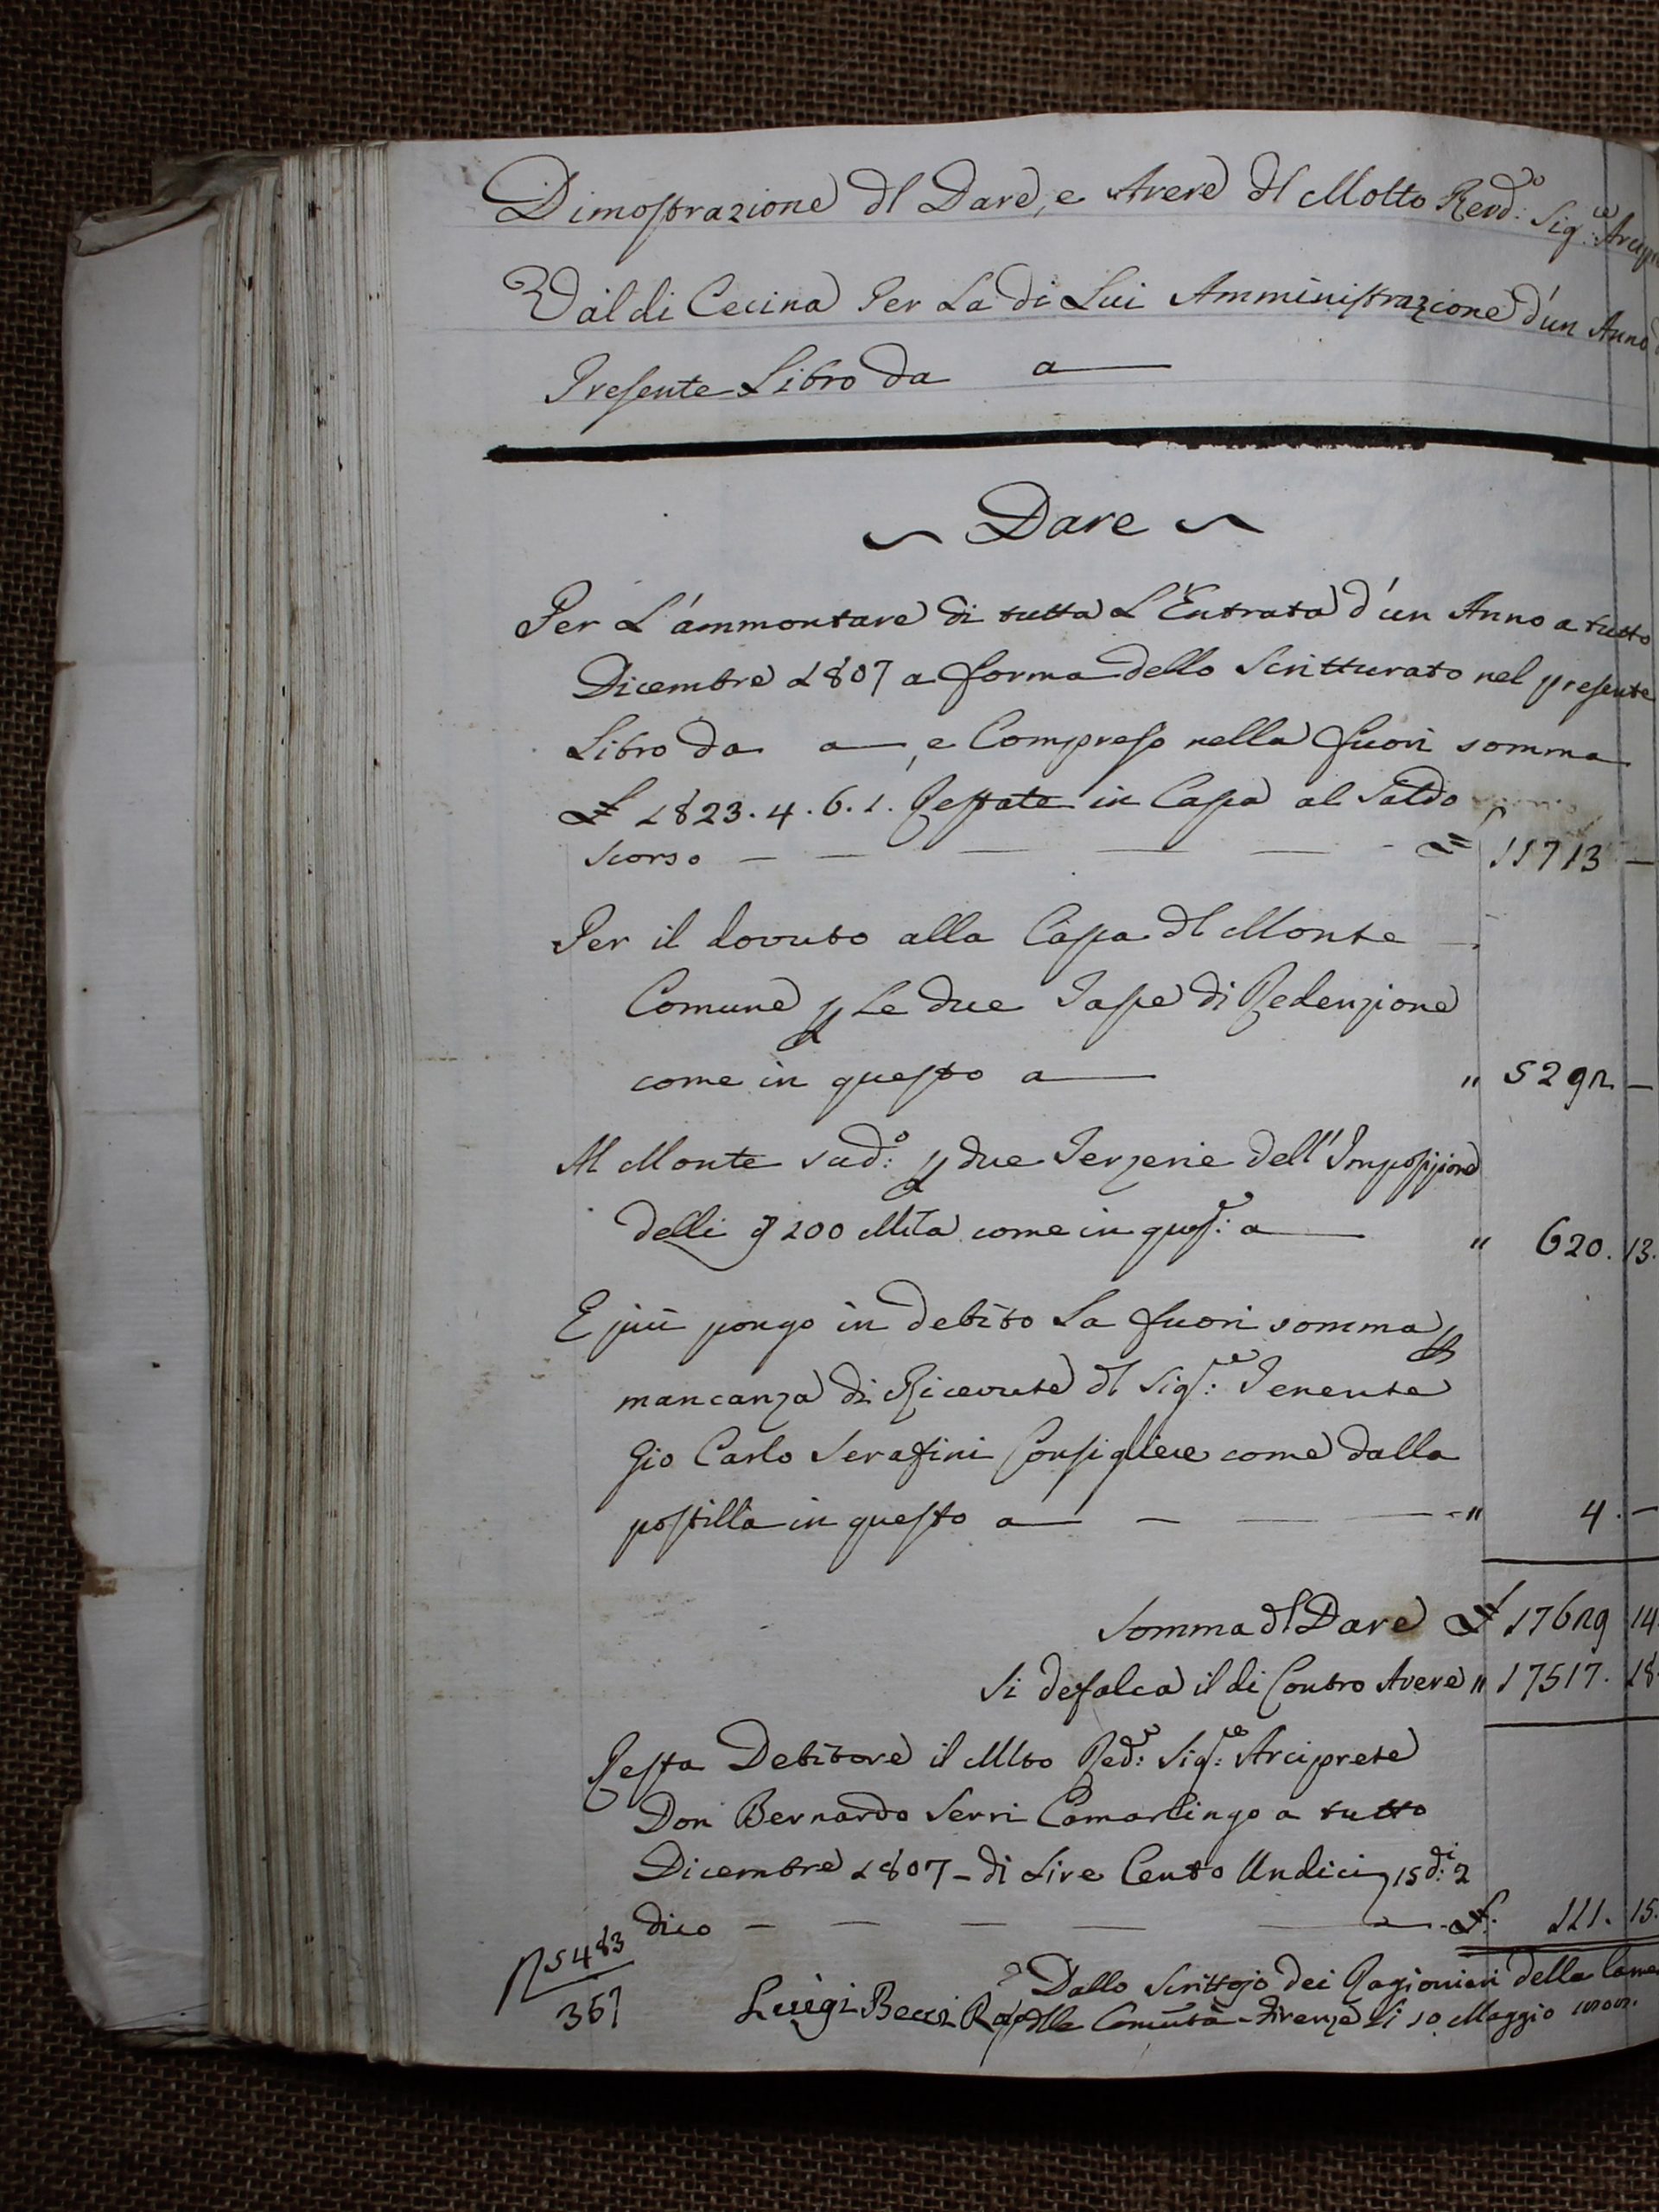 Dimostrazione dl Dare, e Avere dl Molto Revd:º Sig:re Arcip
Val di Cecina Per La di Lui Amministrazione d'un Anno
Presente Libro da a
Dare
Per L'ammontare di tutta L'Entrata d'un Anno a tutto
Dicembre 1807 a forma dello Scritturato nel presente
Libro da a , e Compreso nella fuori somma
£ 1823.4.6.1. Restate in Cassa al Saldo
scorso £ 11713 —
Per il dovuto alla Cassa dl Monte
Comune p Le due Tasse di Redenzione
come in questo a " 5292 —
Al Monte sud:º p due Terzerie dell'Imposizione
delli 200 Mila come in quos:e a " 620.13.
E più pongo in debito La fuori somma p
mancanza di Ricevute dl Sig:re Tenente
Gio Carlo Serafini Consigliere come dalla
postilla in questo a " 4.—
Somma dl Dare £ 17629 14
Si defalca il di Contro Avere " 17517.18
Resta Debitore il Mlto Red:º Sig:re Arciprete
Don Bernardo Serri Camarlingo a tutto
Dicembre 1807 - di Lire Cento Undici 15 d:i 2
dico £. 111.15.
25483
367
Dallo Scrittojo dei Ragionieri della Came
Luigi Becci Rag dlle Comũtà - Firenze Li 10 Maggio